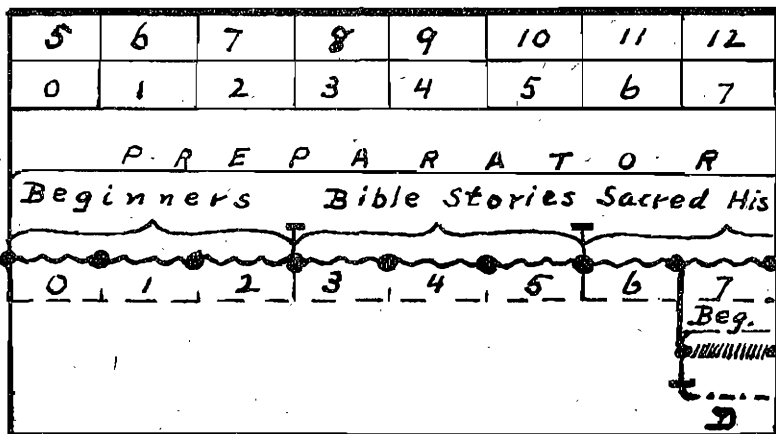 5 6 7 8 9 10 11 12
0 1 2 3 4 5 6 7
P R E P A R A T O R
Beginners Bible Stories Sacred His
0 1 2 3 4 5 6 7
Beg.
D